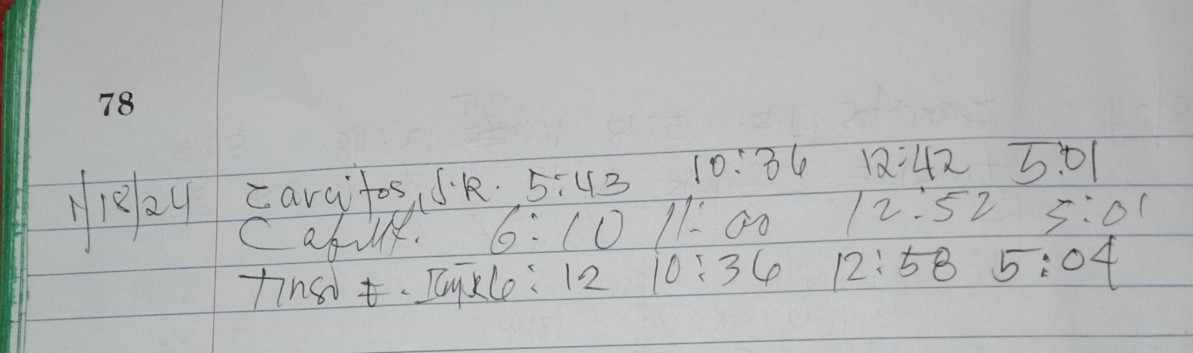 78
11/18/24 Earcitos, J.R. 5:43 10:36 12:42 5:01
6:10 11:00 12:52 5:01
6:12 10:36 12:58 5:04